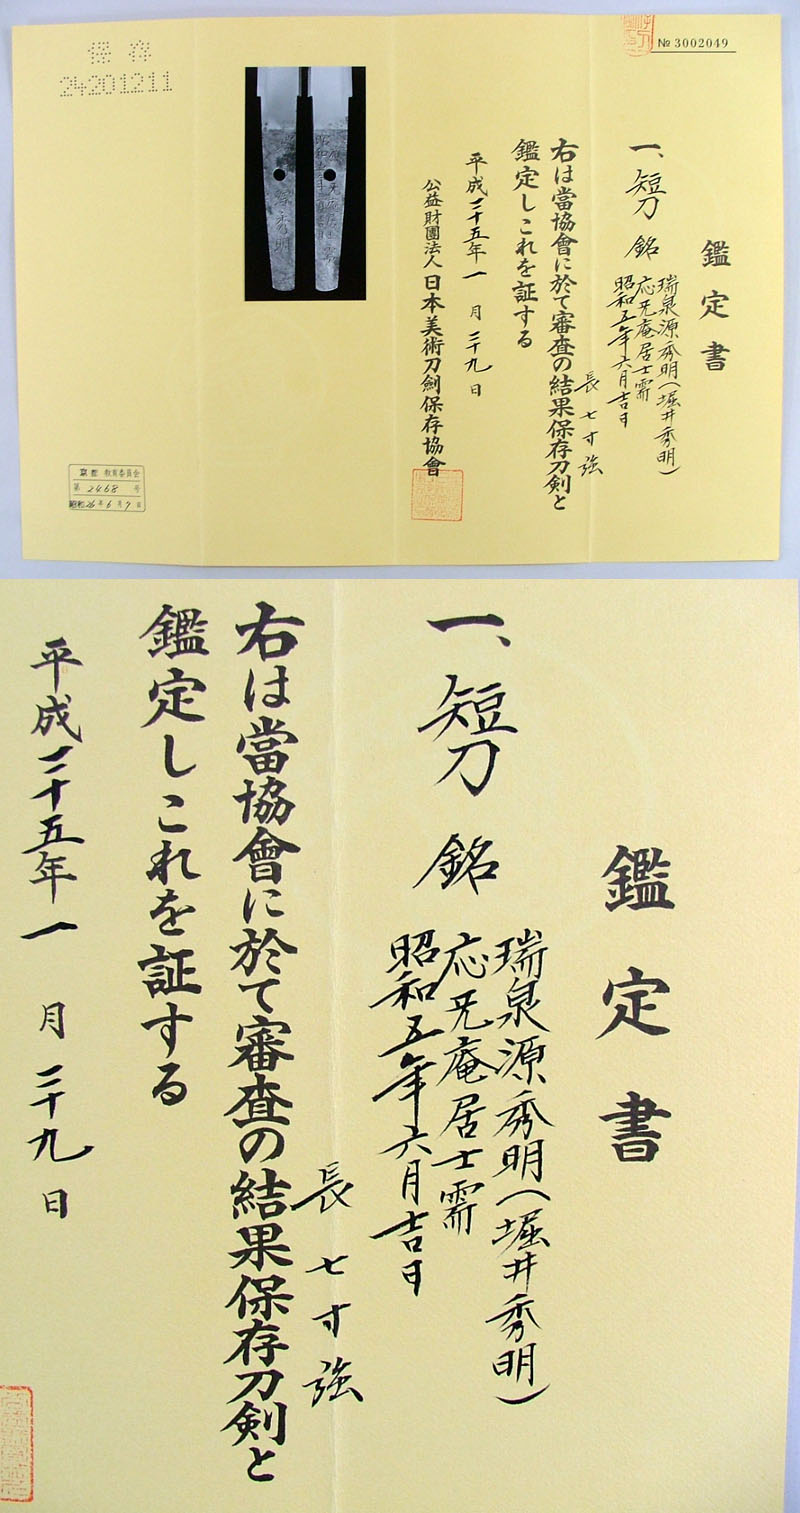 保存
24201211
№ 3002049
鑑定書
一、短刀 銘 瑞泉源秀明(堀井秀明)
応兕庵居士需
昭和五年六月吉日
長七寸強
右は當協會に於て審査の結果保存刀剣と
鑑定しこれを証する
平成二十五年一月二十九日
公益財團法人日本美術刀劍保存協會
教育委員会
第2498号
鑑定書
一、短刀 銘 瑞泉源秀明(堀井秀明)
応兕庵居士需
昭和五年六月吉日
長七寸強
右は當協會に於て審査の結果保存刀剣と
鑑定しこれを証する
平成二十五年一月二十九日